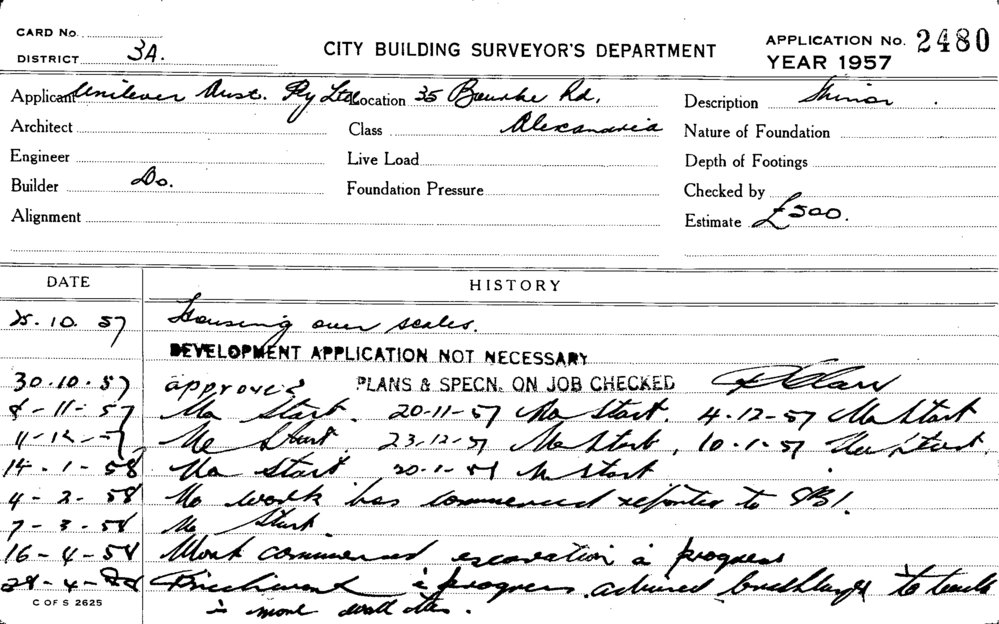 CARD No.
DISTRICT 3A.
CITY BUILDING SURVEYOR'S DEPARTMENT
APPLICATION No. 2480
YEAR 1957
Applicant Unilever Aust. Pty Ltd Location 35 Bourke Rd, Description Minor.
Architect Class Alexandria Nature of Foundation
Engineer Live Load Depth of Footings
Builder Do. Foundation Pressure Checked by
Alignment Estimate £500.
DATE HISTORY
25.10.57 Housing over scales.
DEVELOPMENT APPLICATION NOT NECESSARY
30.10.57 approved PLANS & SPECN. ON JOB CHECKED
8-11-57 No Start. 20-11-57 No Start. 4-12-57 No Start
11-12-57 No Start 23-12-57 No Start, 10-1-57 No Start.
14-1-58 No Start 20-1-58 No Start
4-2-58 No work has commenced reported to SBI.
7-3-58 No Start
16-4-58 Work commenced excavation in progress
28-4-58 Brickwork in progress advised bricklayer to
in more wall ties.
C OF S 2625